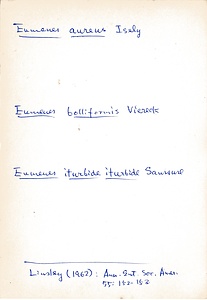 Eumenes aureus Isely
Eumenes bolliformis Viereck
Eumenes iturbide iturbide Saussure
Linsley (1962): Ann. Ent. Soc. Amer.
55: